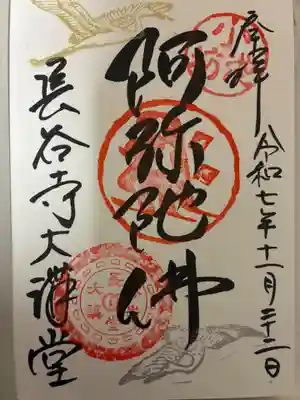 奉拝
令和七年十一月二十二日
阿弥陀佛
長谷寺大講堂
長
大講堂